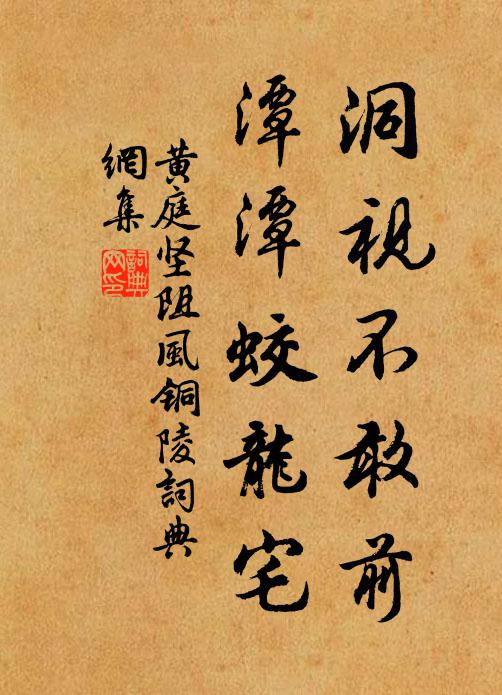 洞視不敢前
潭潭蛟龍宅
黄庭坚阻風铜陵詞典
網集
詞典网印